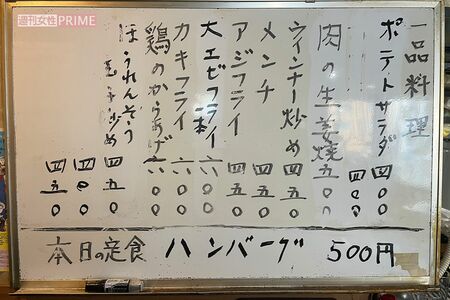 週刊女性PRIME
一品料理
ポテトサラダ 四〇〇
四〇〇
肉の生姜焼 五〇〇
ウィンナー炒め 四五〇
メンチ 四五〇
アジフライ 四五〇
大エビフライ一本 六〇〇
カキフライ 六〇〇
鶏のからあげ 六〇〇
ほうれんそう
玉子炒め 四五〇
四〇〇
四五〇
本日の定食 ハンバーグ 500円